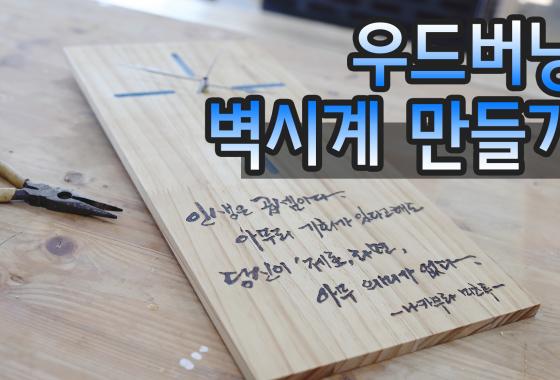 우드버닝
벽시계 만들기
인생은 곱셈이다.
아무리 기회가 있다고해도
당신이 '제로'라면,
아무 의미가 없다.
-나카무라 미츠루-